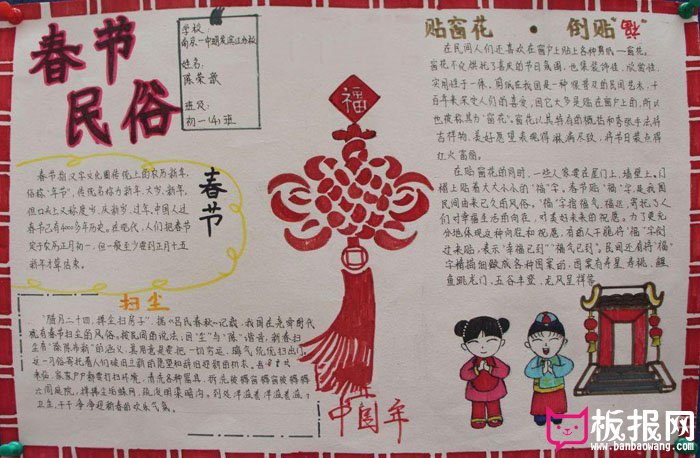 春节
民俗
学校:
姓名:
班级:
初一(4)班
春节
春节是汉字文化圈传统上的农历新年,
俗称"年节",传统名称为新年、大岁、新年,
但口头上又称度岁、庆新岁、过年。中国人过
春节已有4000多年历史。在现代,人们把春节
定于农历正月初一,但一般至少要到正月十五
新年才算结束。
扫尘
"腊月二十四,掸尘扫房子",据《吕氏春秋》记载,我国在尧舜时代
就有春节扫尘的风俗。按民间的说法:因"尘"与"陈"谐音,新春扫
尘有"除陈布新"的涵义,其用意是要把一切穷运、晦气统统扫出门。
这一习俗寄托着人们破旧立新的愿望和辞旧迎新的祈求。
来临,家家户户都要打扫环境,清洗各种器具,拆洗被褥窗帘,洒扫
六闾庭院,掸拂尘垢蛛网,疏浚明渠暗沟。到处洋溢着
卫生、干干净净迎新春的欢乐气氛。
福
中国年
贴窗花 · 倒贴"福"
在民间人们还喜欢在窗户上贴上各种剪纸—窗花。
窗花不仅烘托了喜庆的节日气氛,也集装饰性、欣赏性、
实用性于一体。剪纸在我国是一种很普及的民间艺术,千
百年来深受人们的喜爱,因它大多是贴在窗户上的,所以
也被称其为"窗花"。窗花以其特有的概括和夸张手法将
吉祥物、美好愿望表现得淋漓尽致,将节日装点得
红火富丽。
在贴窗花的同时,一些人家要在屋门上、墙壁上、门
楣上贴上大大小小的"福"字。春节贴"福"字,是我国
民间由来已久的风俗。"福"字指福气、福运,寄托了人
们对幸福生活的向往,对美好未来的祝愿。为了更充
分地体现这种向往和祝愿,有的人干脆将"福"字倒
过来贴,表示"幸福已到""福气已到"。民间还有将"福"
字精描细做成各种图案的,图案有寿星、寿桃、鲤
鱼跳龙门、五谷丰登、龙凤呈祥等
板报网
www.banbaowang.com